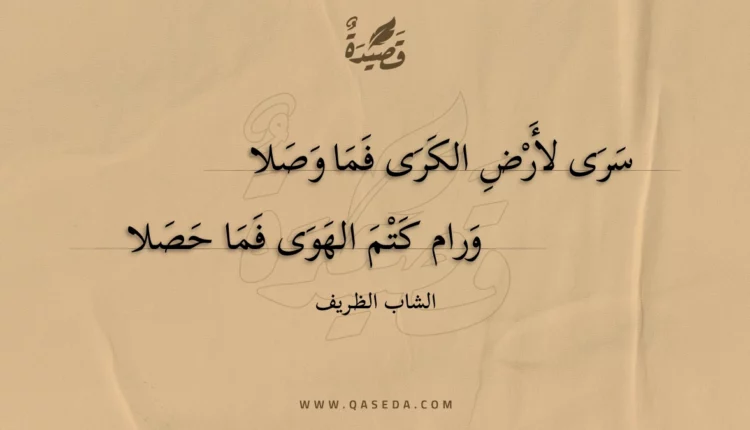 قَصِيْدَةٌ
سَرَى لأَرْضِ الكَرَى فَمَا وَصَلا
وَرام كَتْمَ الهَوَى فَمَا حَصَلا
الشاب الظريف
WWW.QASEDA.COM